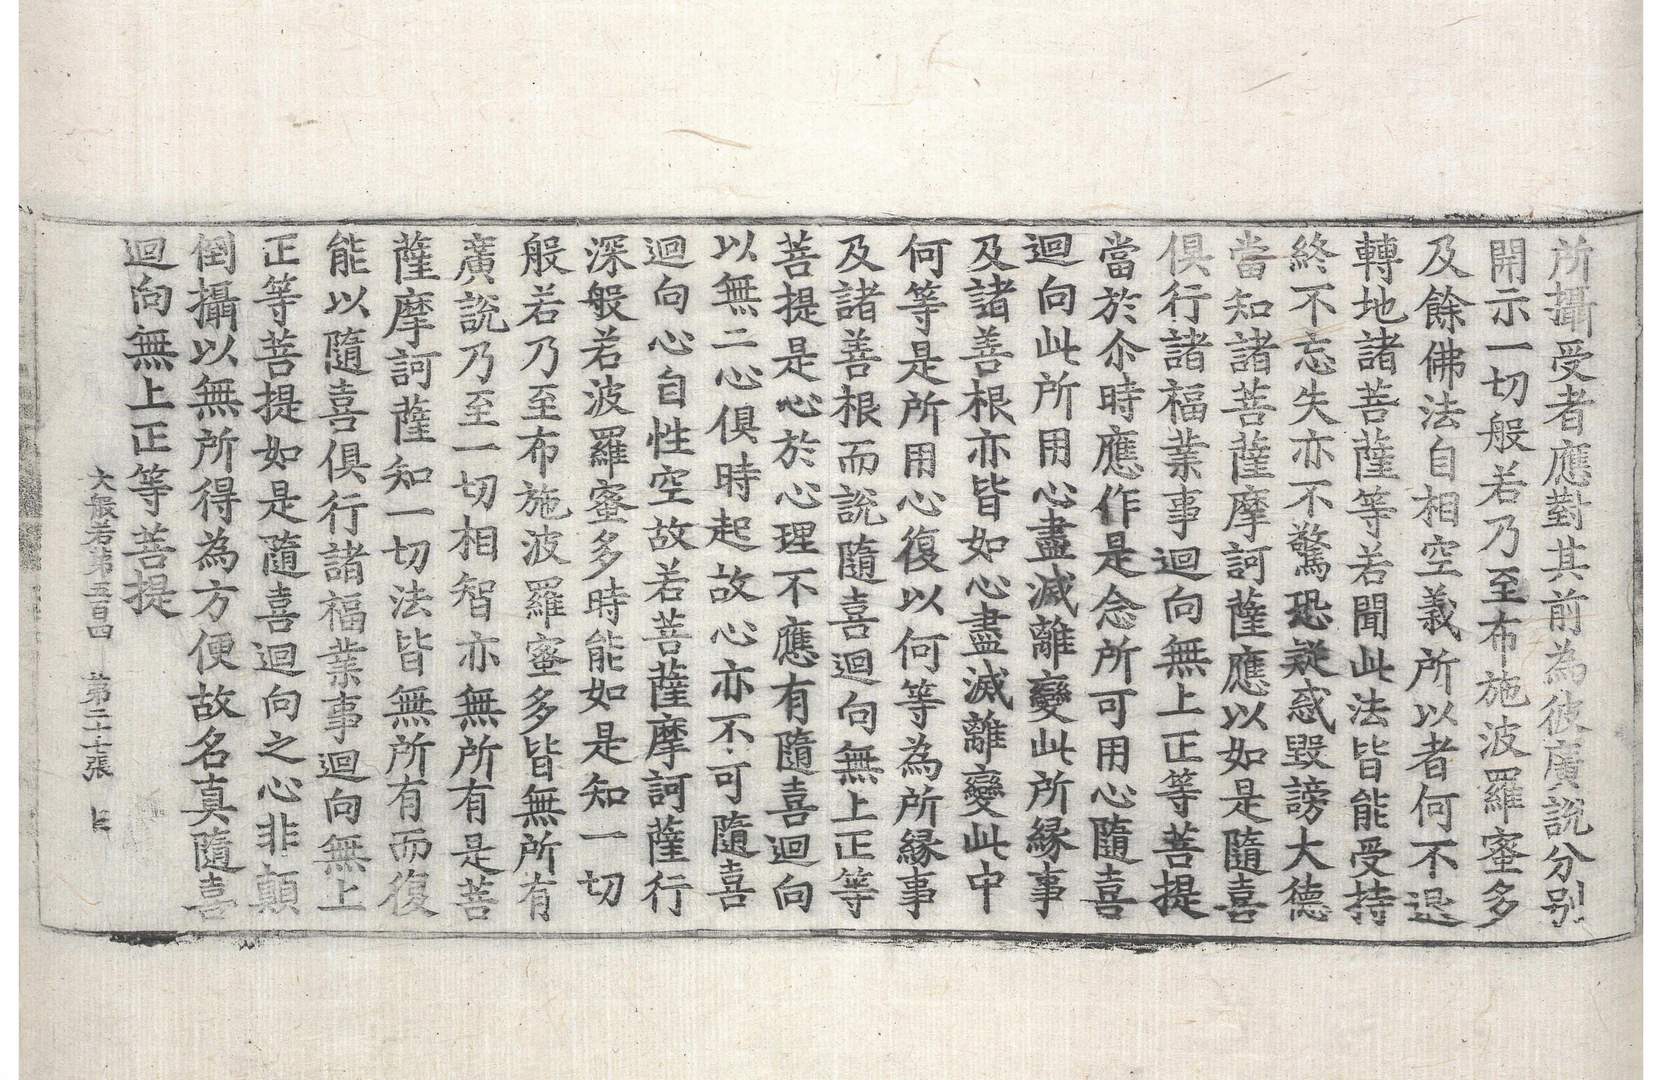 所攝受者應對其前為彼廣說分別
開示一切般若乃至布施波羅蜜多
及餘佛法自相空義所以者何不退
轉地諸菩薩等若聞此法皆能受持
終不忘失亦不驚恐疑惑毀謗大德
當知諸菩薩摩訶薩應以如是隨喜
俱行諸福業事迴向無上正等菩提
當於尒時應作是念所可用心隨喜
迴向此所用心盡滅離變此所緣事
及諸善根亦皆如心盡滅離變此中
何等是所用心復以何等為所緣事
及諸善根而說隨喜迴向無上正等
菩提是心於心理不應有隨喜迴向
以無二心俱時起故心亦不可隨喜
迴向心自性空故若菩薩摩訶薩行
深般若波羅蜜多時能如是知一切
般若乃至布施波羅蜜多皆無所有
廣說乃至一切相智亦無所有是菩
薩摩訶薩知一切法皆無所有而復
能以隨喜俱行諸福業事迴向無上
正等菩提如是隨喜迴向之心非顛
倒攝以無所得為方便故名真隨喜
迴向無上正等菩提
大般若第五百四 第二十七張